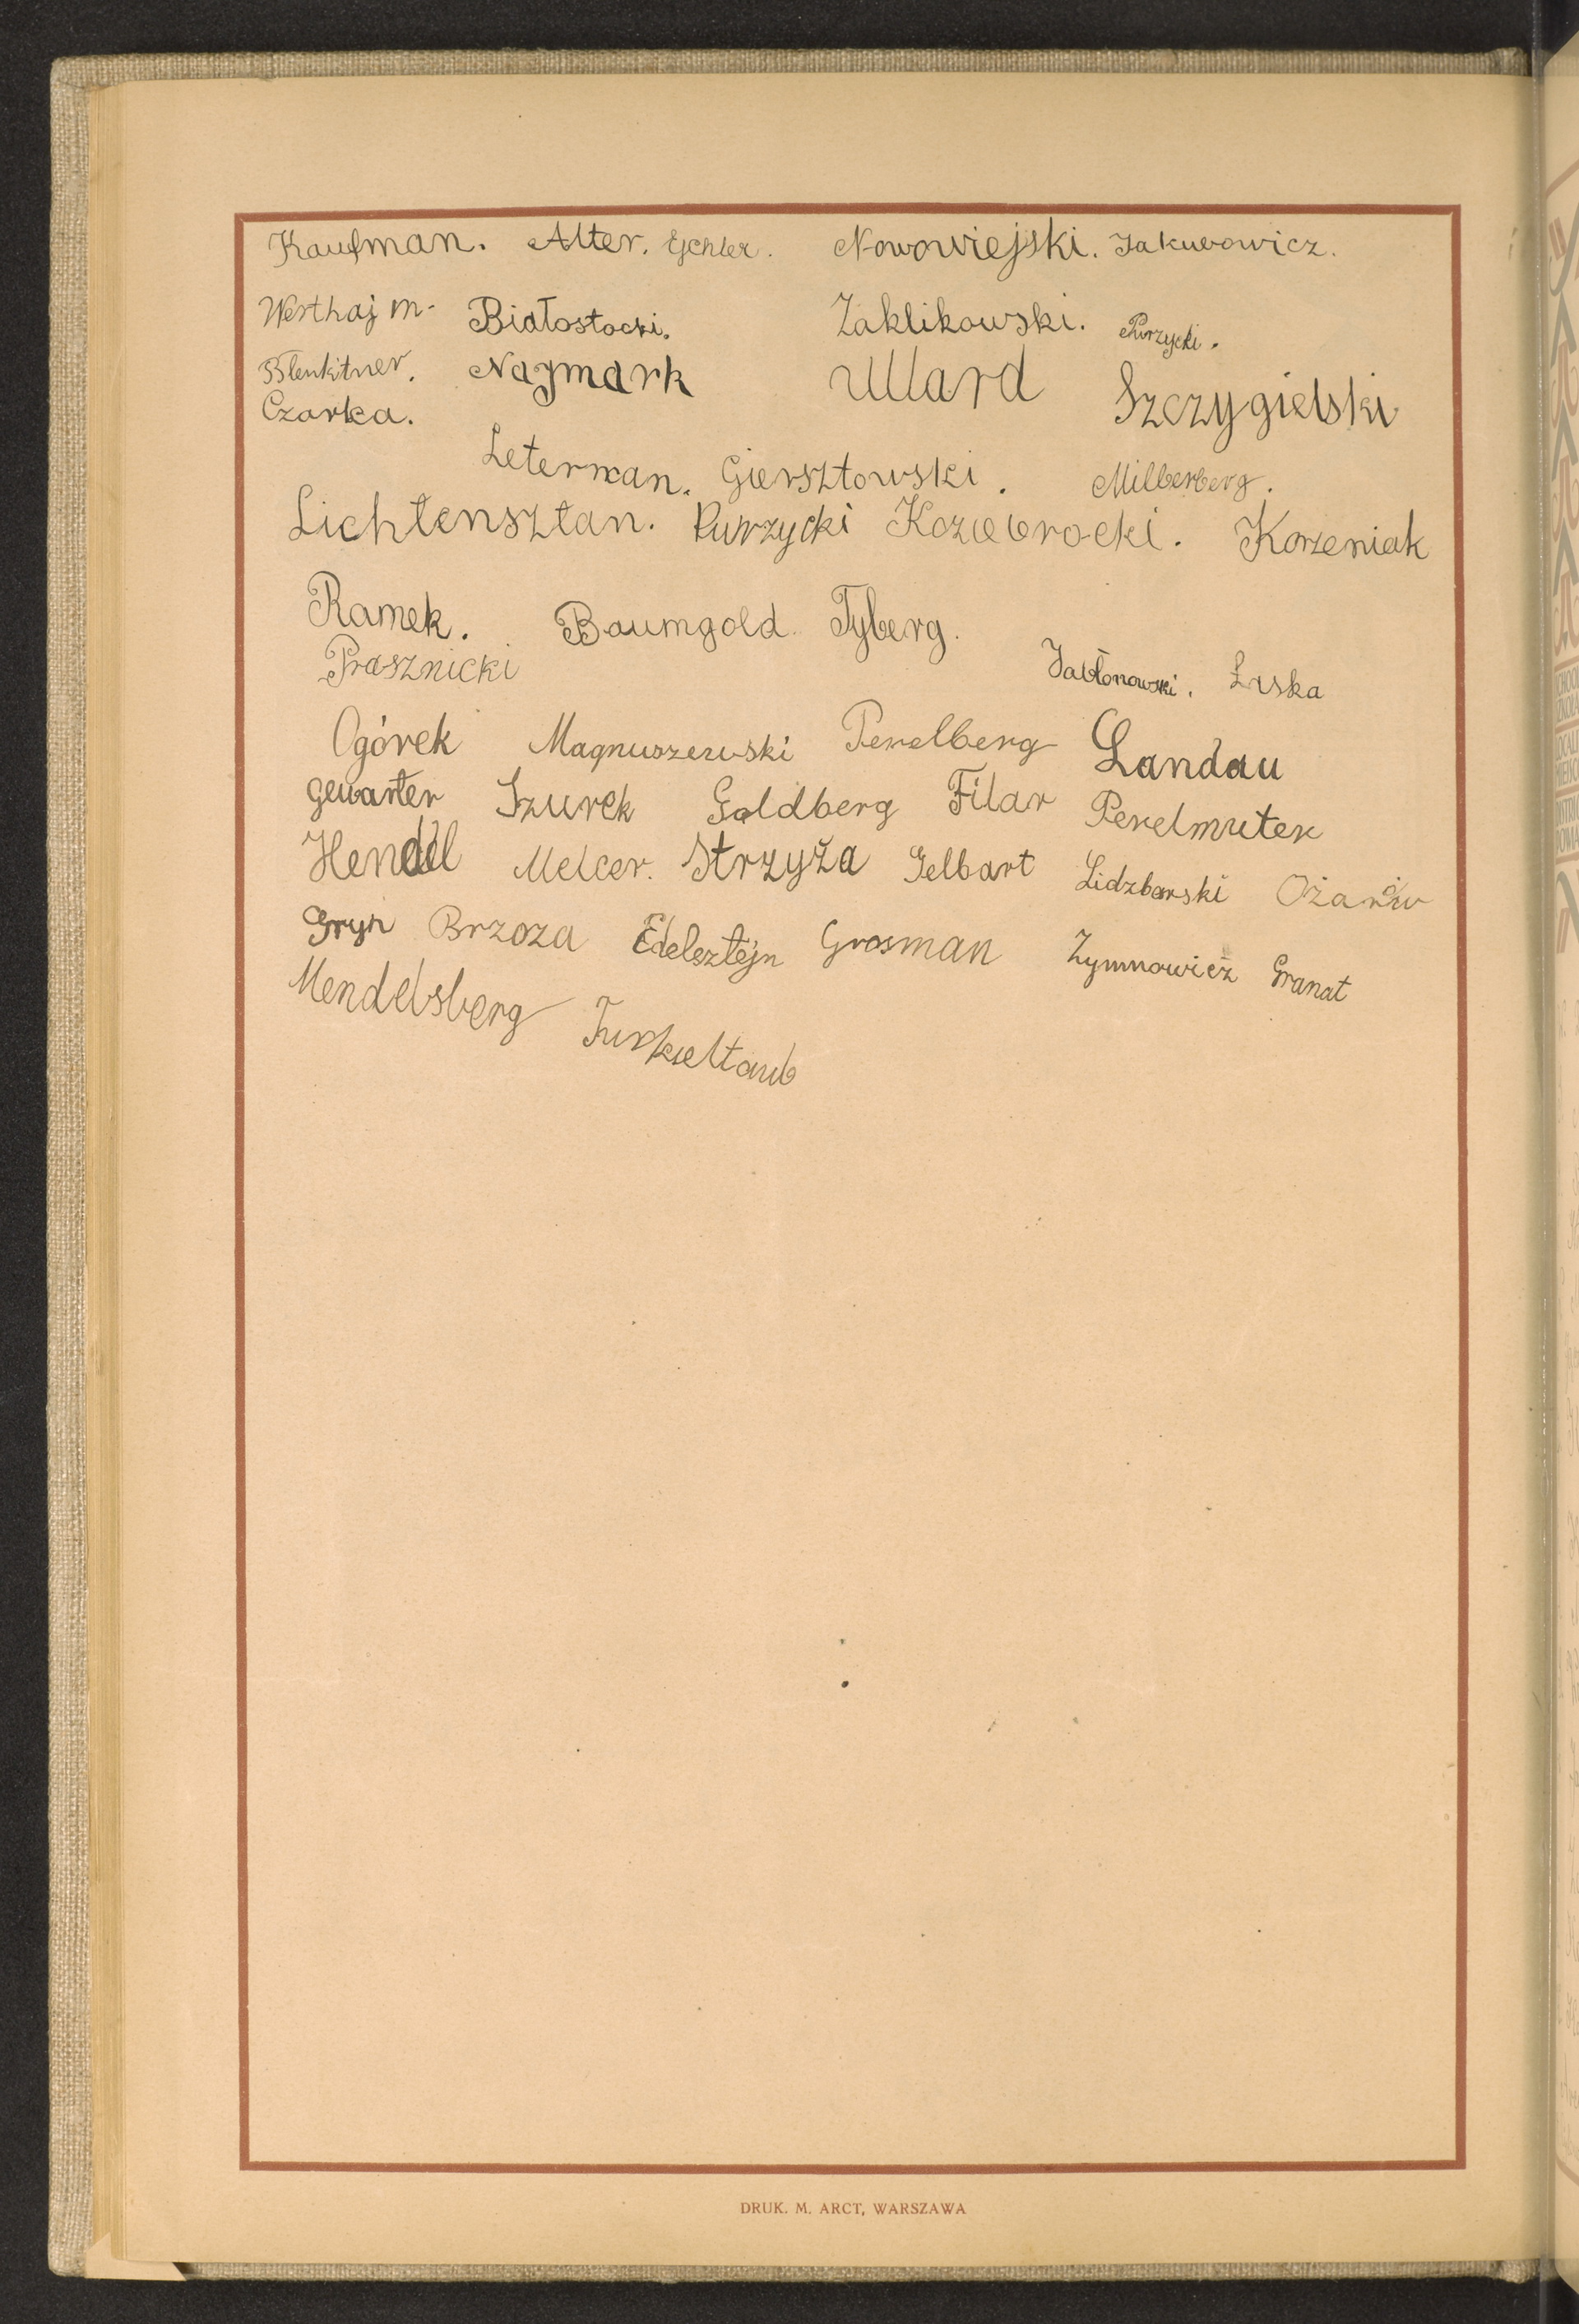 Kaufman. Alter. Ejchler. Nowowiejski. Jakubowicz.
Westhajm- Białostocki. Zaklikowski. Purzycki.
Blenkitner. Najmark Ward Szczygielski
Czarka.
Leterman. Giersztowski. Milberberg.
Lichtensztan. Purzycki Koziebrocki. Korzeniak
Ramek. Baumgold Tyberg.
Prasznicki Jabłonowski. Łaska
Ogórek Magnuszewski Perelberg Landau
Gewarter Szurek Goldberg Filar Perelmuter
Hendel Melcer. Strzyża Gelbart Lidzbarski Ożarów
Gryn Brzoza Edelsztejn Grosman Zymnowicz Granat
Mendelsberg Turkieltaub
DRUK. M. ARCT, WARSZAWA